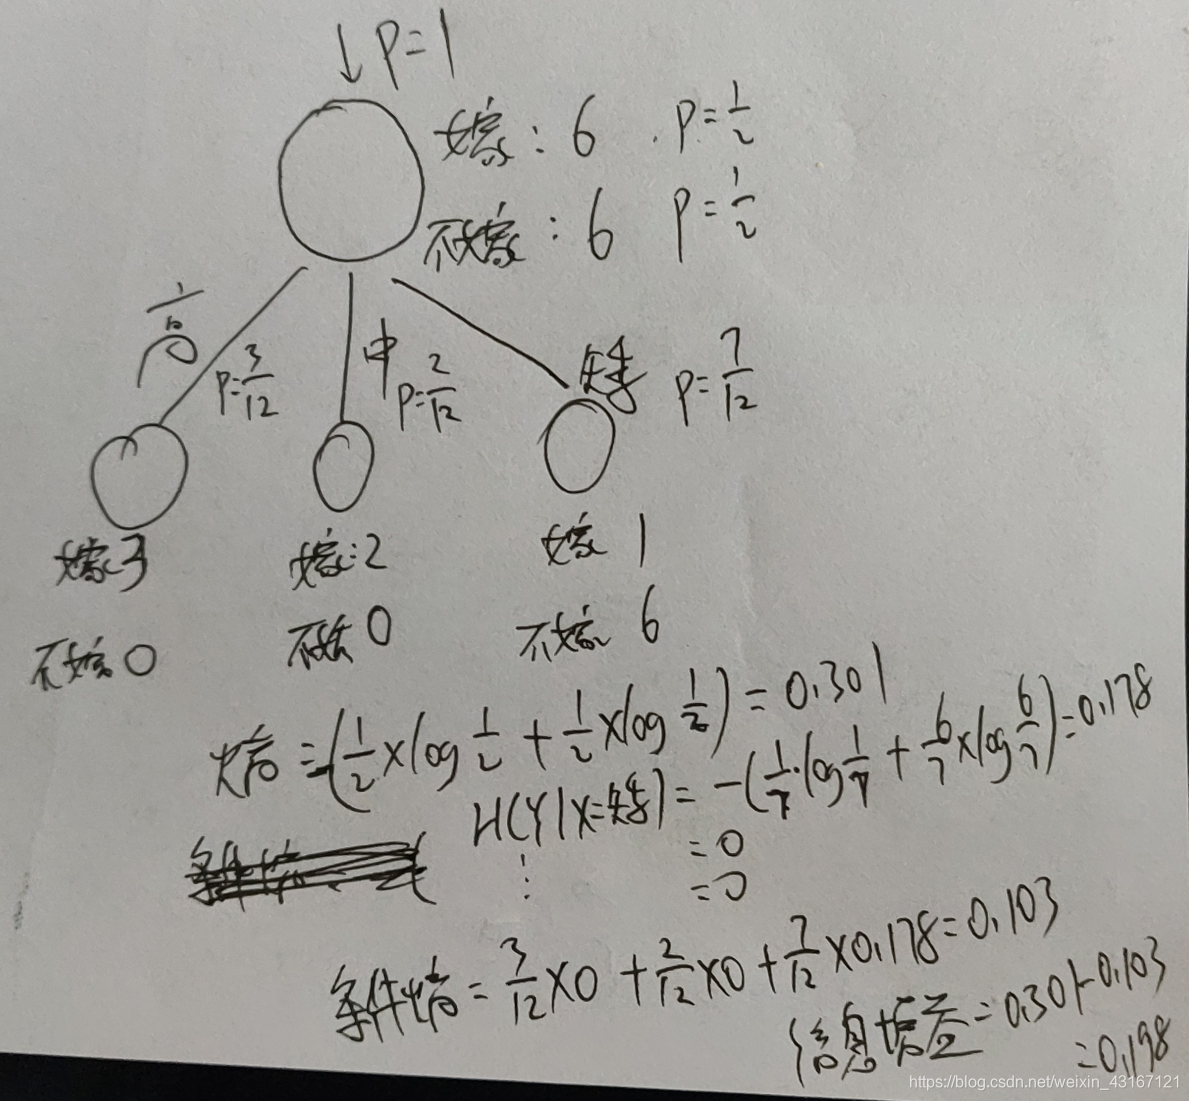 ↓ P=1
嫁: 6 . P=1/2
不嫁: 6 P=1/2
高 P=3/12
中 P=2/12
矮 P=7/12
嫁3
不嫁0
嫁:2
不嫁0
嫁 1
不嫁 6
熵 = -(1/2×log 1/2 + 1/2×log 1/2) = 0.301
H(Y|X=矮) = -(1/7·log 1/7 + 6/7×log 6/7) = 0.178
= 0
⋮ = 0
条件熵 = 3/12×0 + 2/12×0 + 7/12×0.178 = 0.103
信息熵差 = 0.301-0.103
= 0.198
https://blog.csdn.net/weixin_43167121